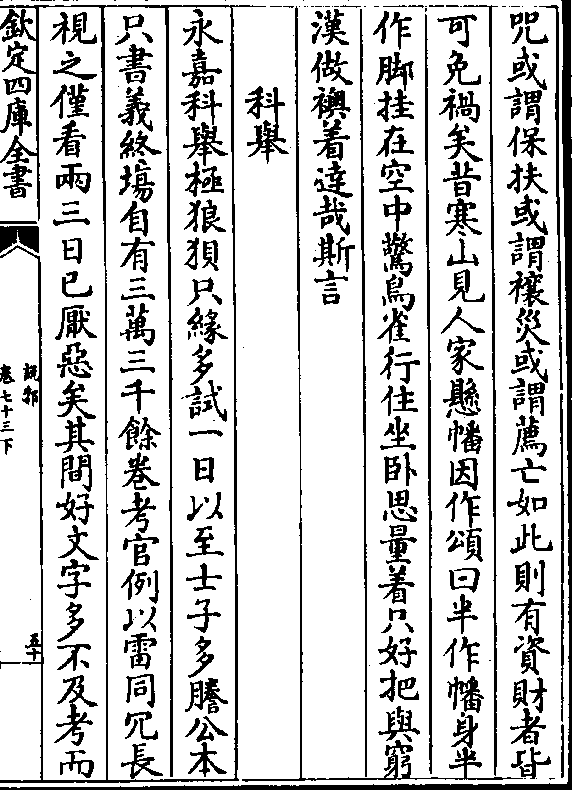 咒或謂保扶或謂禳災或謂薦亡如此則有資財者皆
可免禍矣昔寒山見人家懸幡因作頌曰半作幡身半
作脚挂在空中驚鳥雀行住坐卧思量着只好把與窮
漢做襖着達哉斯言
科舉
永嘉科舉極狼狽只緣多試一日以至士子多謄公本
只書義終塲自有三萬三千餘卷考官例以雷同冗長
視之僅看兩三日已厭惡矣其間好文字多不及考而
欽定四庫全書
說郛
卷七十三下
五十